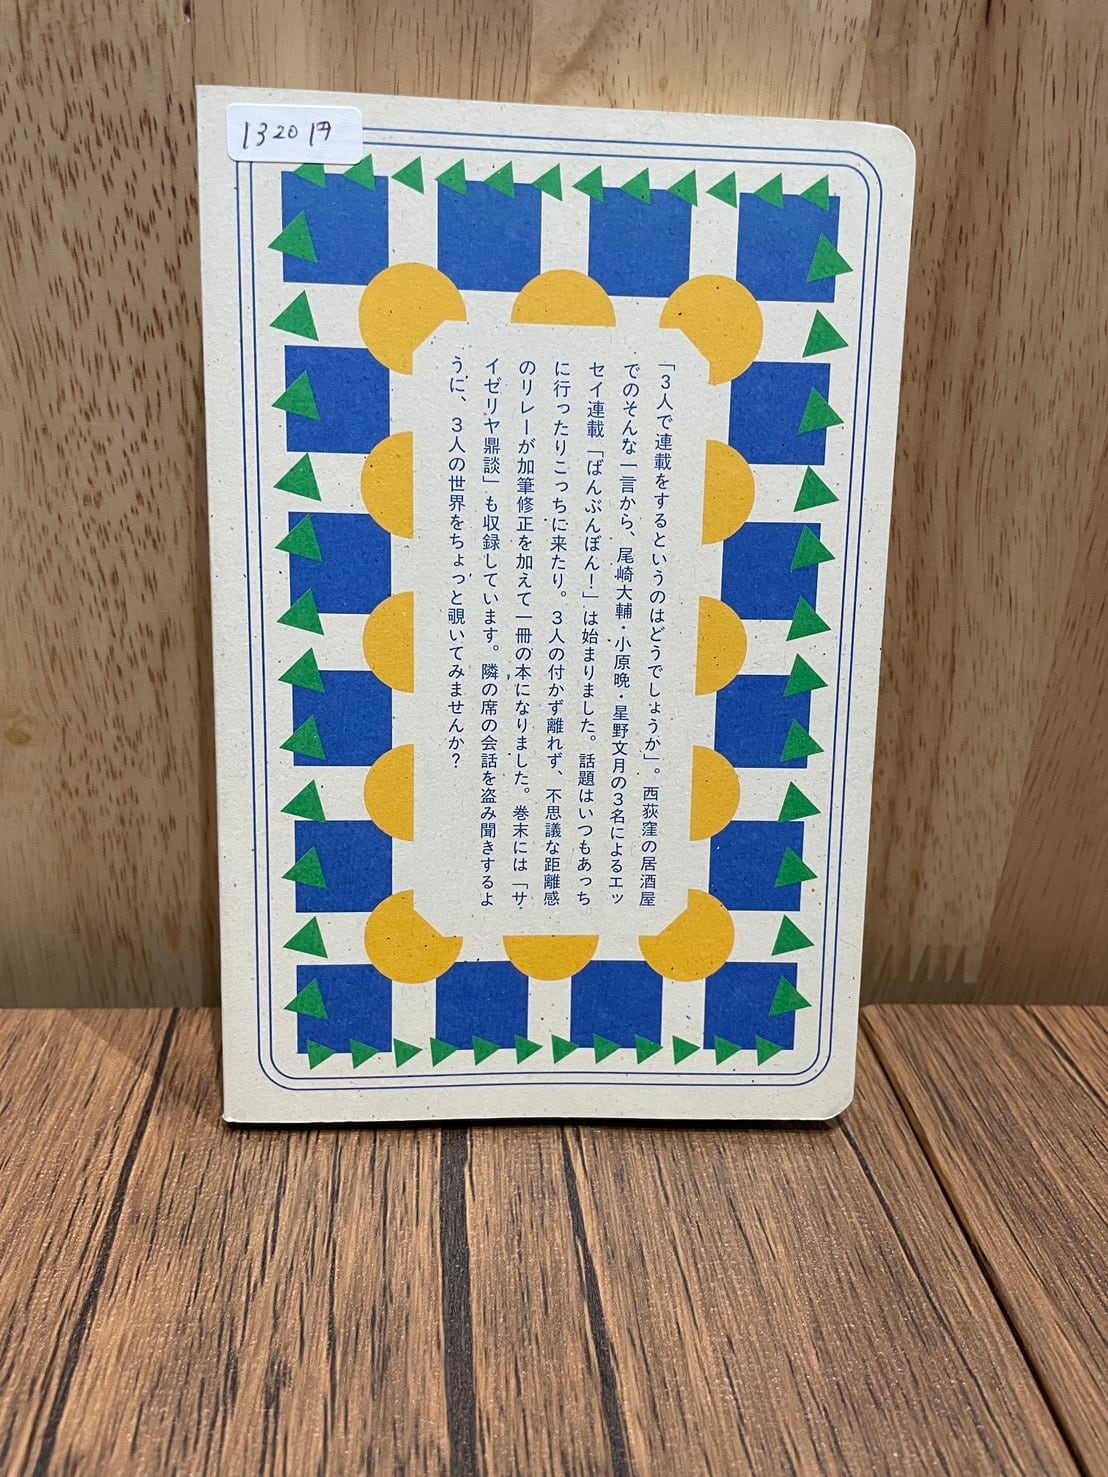 132017
「３人で連載をするというのはどうでしょうか」。西荻窪の居酒屋
でのそんな一言から、尾崎大輔・小原晩・星野文月の３名によるエッ
セイ連載「ばんぶんぼん！」は始まりました。話題はいつもあっち
に行ったりこっちに来たり。３人の付かず離れず、不思議な距離感
のリレーが加筆修正を加えて一冊の本になりました。巻末には「サ
イゼリヤ鼎談」も収録しています。隣の席の会話を盗み聞きするよ
うに、３人の世界をちょっと覗いてみませんか？